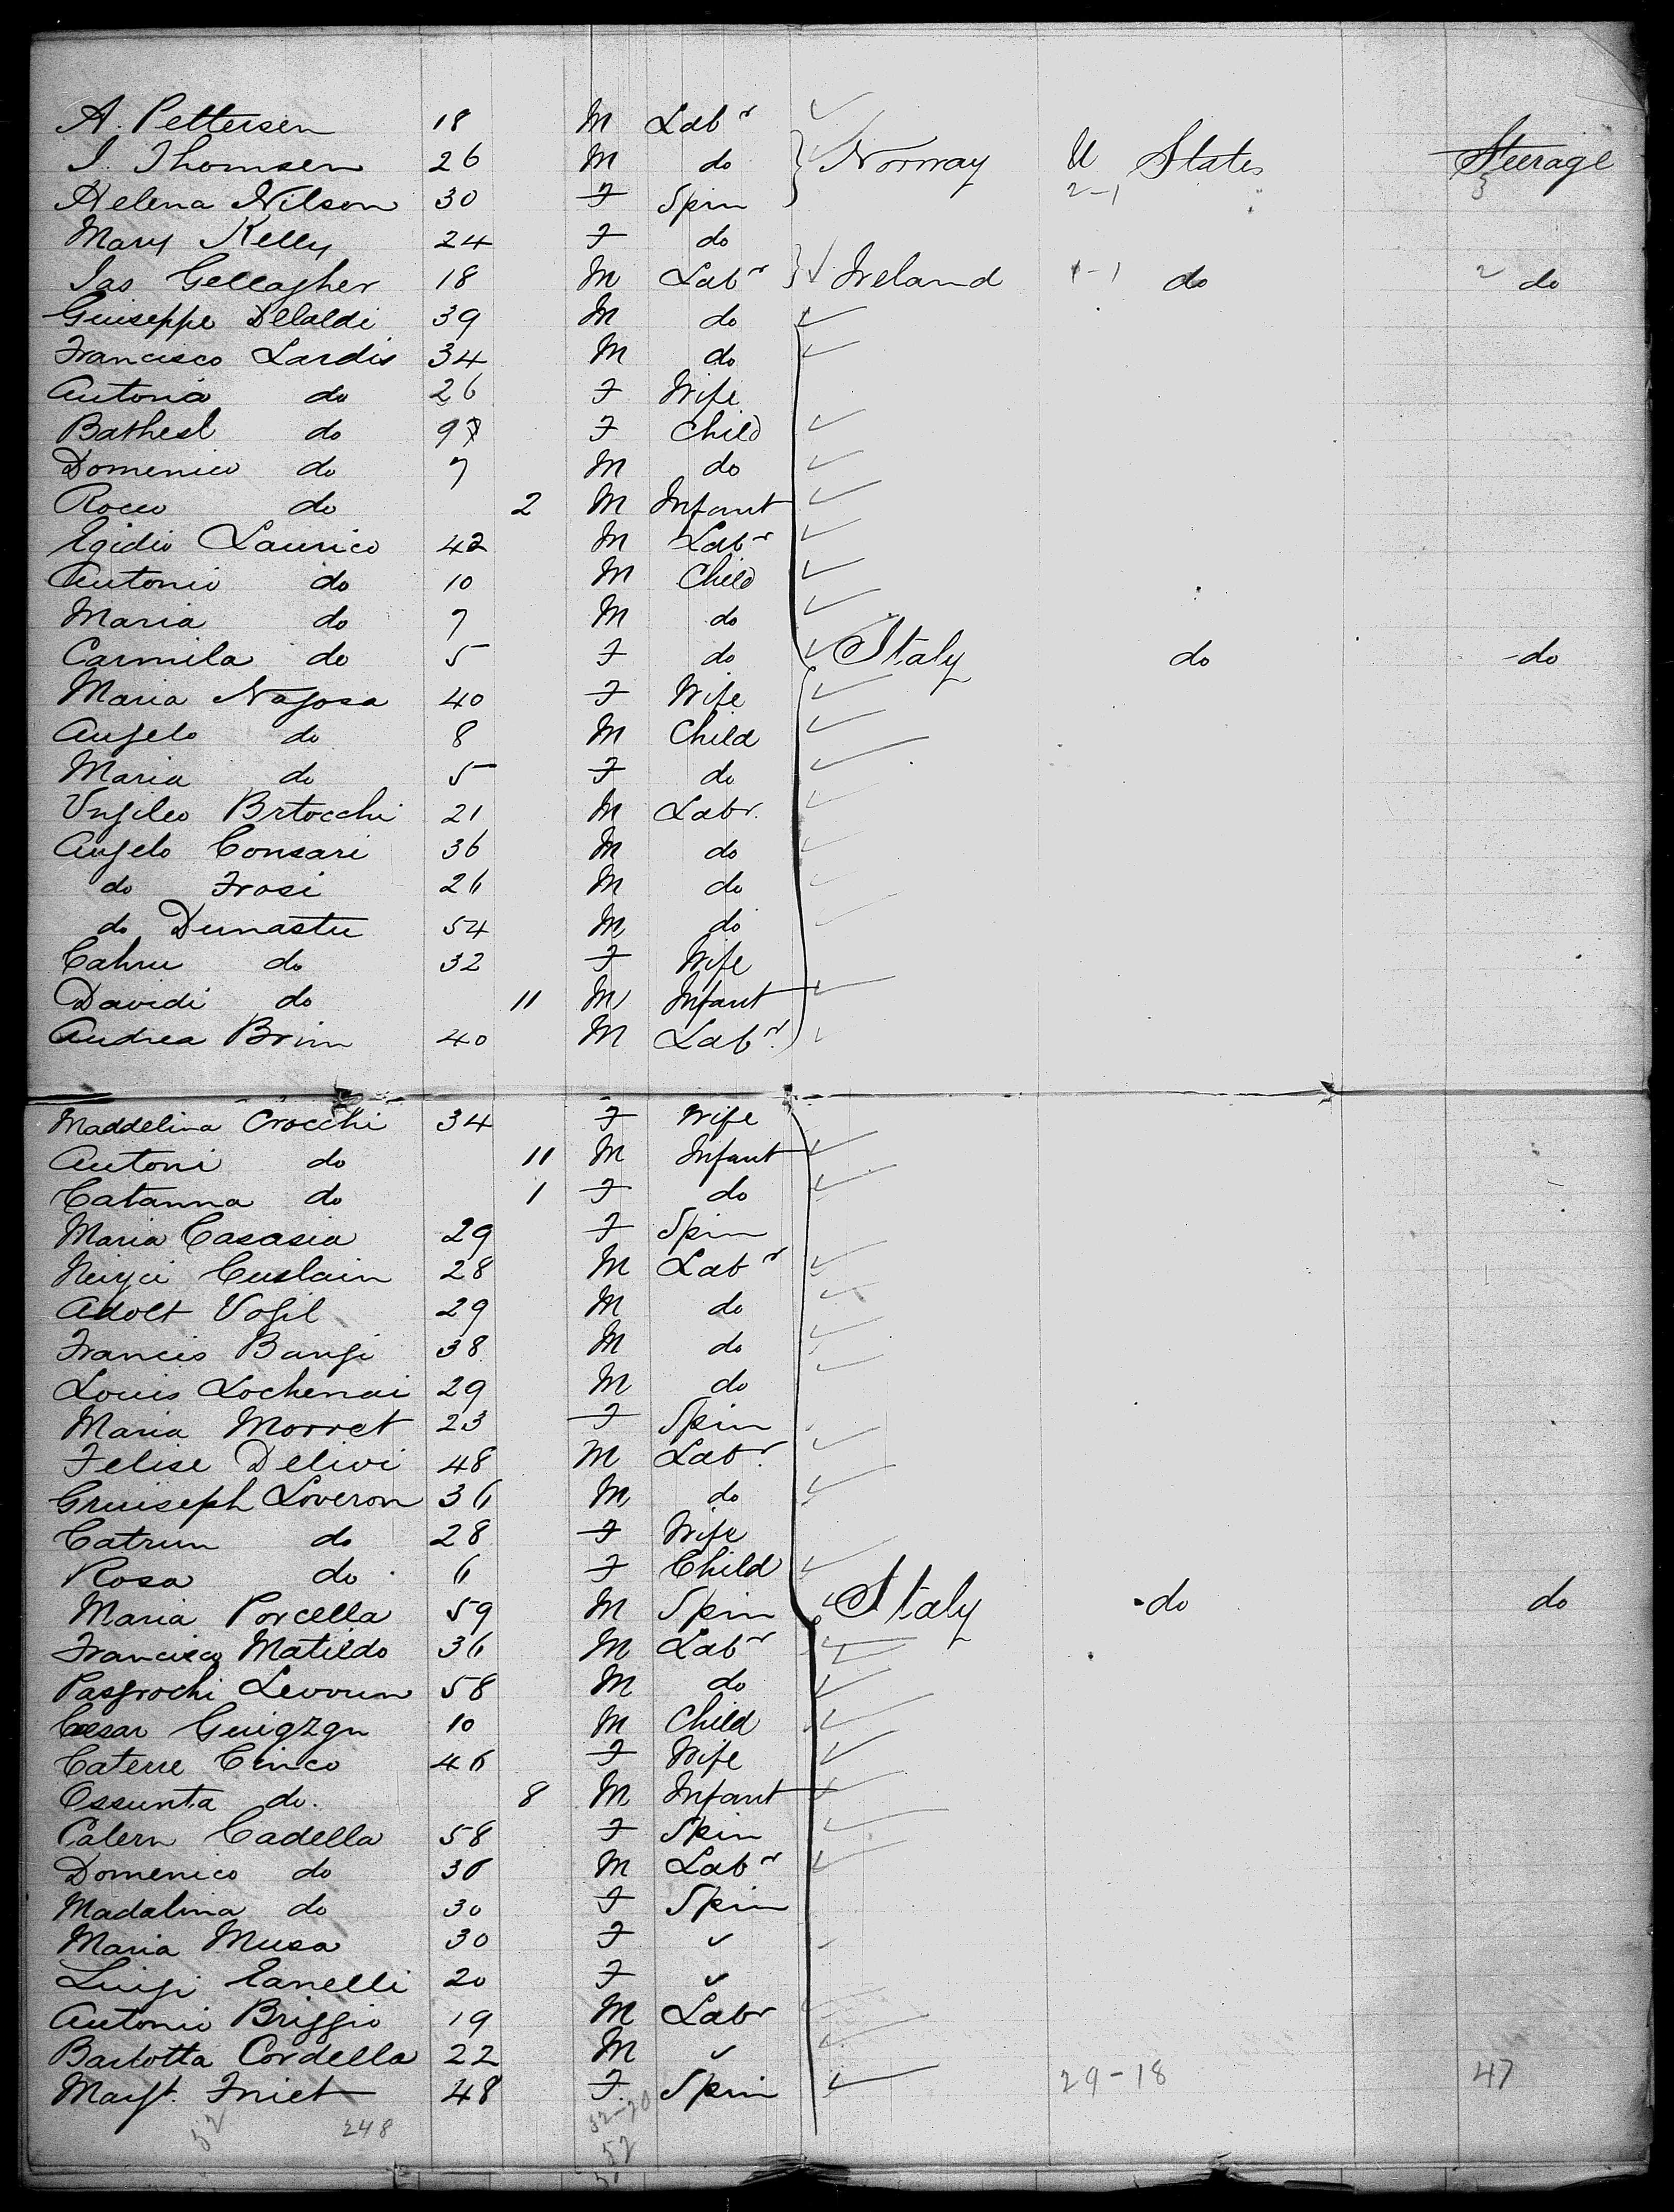 A. Pettersen 18 M Labr
I. Thomsen 26 M do Norway U States Steerage
Helena Nilson 30 F Spin 2-1 3
Mary Kelly 24 F do
Jas Gellagher 18 M Labr Ireland 1-1 do 2 do
Guiseppe Dllaldi 39 M do
Francisco Lardis 34 M do
Antonia do 26 F Wife
Bathesl do 9 F Child
Domenico do 7 M do
Rocco do 2 M Infant
Egidio Laurico 42 M Labr
Antonio do 10 M Child
Maria do 7 M do
Carmila do 5 F do Italy do do
Maria Nagosa 40 F Wife
Angelo do 8 M Child
Maria do 5 F do
Virgileo Brtocchi 21 M Labr.
Angelo Consari 36 M do
do Frosi 26 M do
do Dunastu 54 M do
do 32 F Wife
Davidi do 11 M Infant
Andrea Brim 40 M Labr.
Maddelina Crocchi 34 F Wife
Antoni do 11 M Infant
Catanna do 1 F do
Maria Casasia 29 F Spin
Cuslain 28 M Labr
Adolt Vogil 29 M do
Francis Bangi 38 M do
Louis Lochenai 29 M do
Maria Morret 23 F Spin
Felise Delivi 48 M Labr.
Gruiseph Loveron 36 M do
Catrun do 28 F Wife
Rosa do 6 F Child
Maria Porcella 59 M Spin Italy do do
Francisco Matildo 36 M Labr
Pasgrochi Levoun 58 M do
Cesar Guigzgn 10 M Child
Caterre Cinco 46 F Wife
Ossunta do. 8 M Infant
Calern Cadella 58 F Spin
Domenico do 36 M Labr
Madalina do 30 F Spin
Maria Musa 30 F
Luigi Eanelli 20 F
Antonio Briggio 19 M Labr
Bartotta Cordella 22 M
Margt. Friet 48 F. Spin 29-18 47
52 248 32-20
52